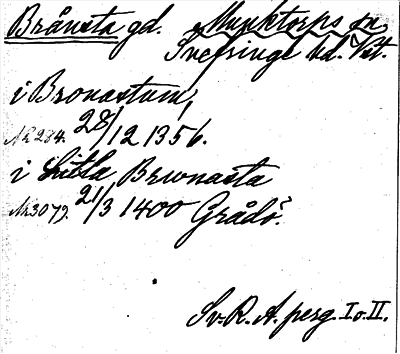 Brånsta gd. Munktorps sn.
Snefringe hd. Vst.
i Bronastum,
N. 284. 28/12 1356.
i Litla Brwnasta
N. 3079. 21/3 1400 Grådö.
Sv. R. A. perg. I o. II.